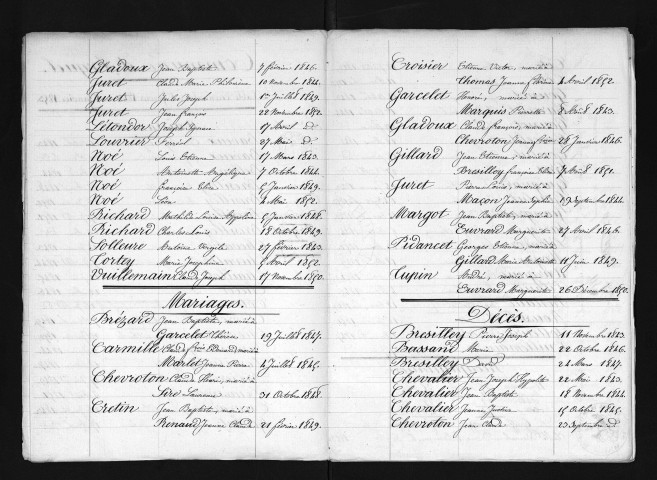 Gladoux Jean Baptiste 7 février 1846.
Juret Claude Marie Philomène 10 novembre 1844.
Juret Jules Joseph 1er Juillet 1849.
Juret Jean françois 22 Novembre 1852.
Létondor Joseph 17 Avril do
Louvrier 27 Mai do
Noé Louis Etienne 17 Mars 1843.
Noé Antoinette Angélique 7 Octobre 1844.
Noé françoise Elise 5 Janvier 1849.
Noé Léon 4 Mai 1852.
Richard Mathilde Louise Appoline 5 Janvier 1848.
Richard Charles Louis 18 Octobre 1849.
Solleure Antoine Virgile 27 février 1843.
Cortey Marie Joséphine 5 Avril 1852.
Vuillemain Claude Joseph 17 Novembre 1850.
Mariages.
Brézard Jean Baptiste, marié à
Garcelet Thérèse 19 Juillet 1847.
Carmille Claude fois Edouard marié à
Marlet Jeanne Pierre 4 Juillet 1845.
Chevroton Claude Henri, marié à
Sire Laurence 31 Octobre 1848.
Cretin Jean Baptiste, marié à
Renaud Jeanne Claude 21 février 1849.
Croisier Etienne Victor, marié à
Thomas Jeanne 4 Avril 1852.
Garcelet Honoré, marié à
Marquis Pierrette 8 Août 1843.
Gladoux Claude françois, marié à
Chevroton Jeanne foise 28 Janvier 1846.
Gillard Jean Etienne, marié à
Bresilley françoise Elise 7 Août 1851.
Juret Pierre Louis, marié à
Maçon Jeanne Sophie 19 Septembre 1844.
Margot Jean Baptiste, marié à
Euvrard Marguerite 27 Avril 1846.
Pidancet Georges Etienne, marié à
Gillard Marie Antoinette 11 Juin 1849.
Cupin André, marié à
Euvrard Marguerite 26 Décembre 1850.
Décès.
Bresilley Pierre Joseph 11 Novembre 1843.
Bassand Marie 22 Octobre 1846.
Bresilley David 24 Mars 1847.
Chevalier Jean Joseph Hyppolite 22 Mai 1843.
Chevalier Jean Baptiste 18 Novembre 1844.
Chevalier Jeanne Justine 15 Octobre 1845.
Chevroton Jean Claude 23 Septembre do